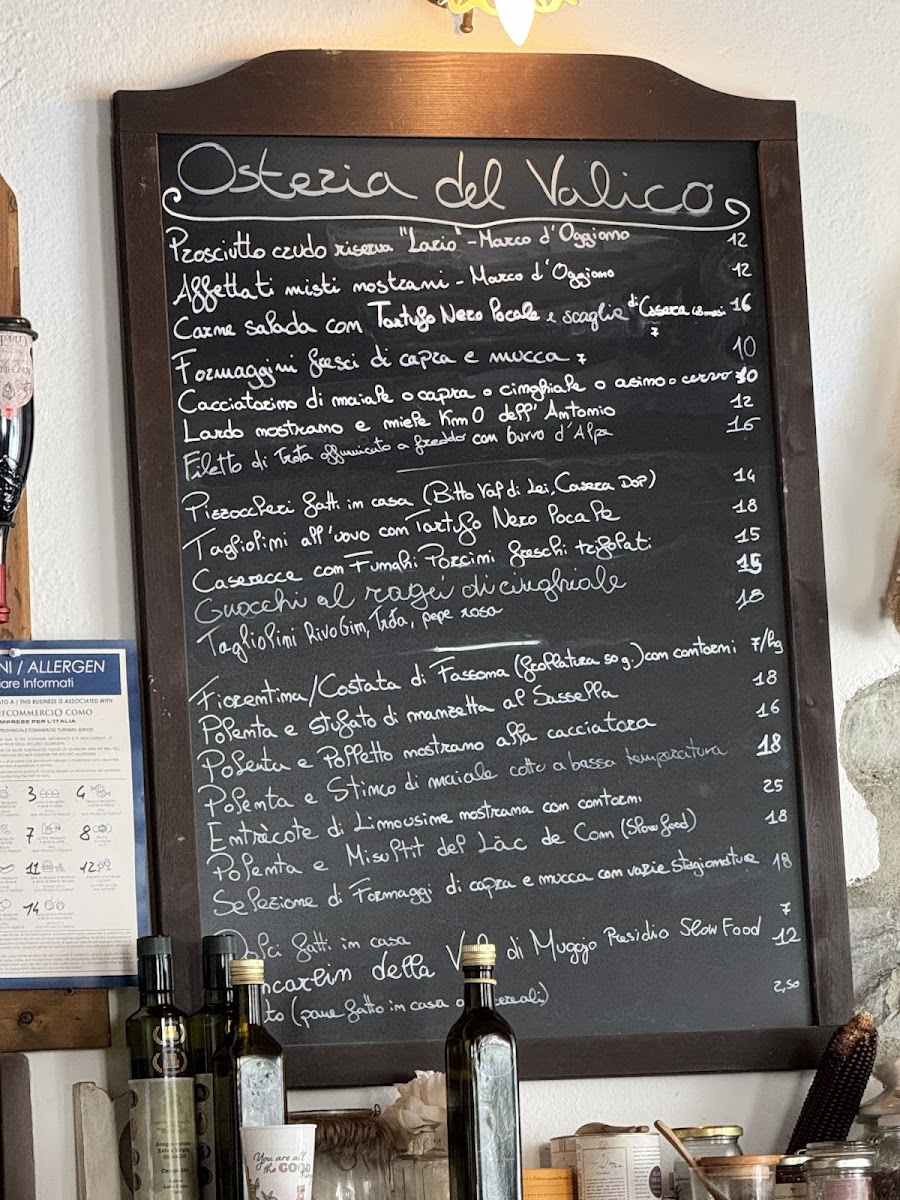 Osteria del Valico
Prosciutto crudo riserva "Lario" - Marco d'Oggiono 12
Affettati misti nostrani - Marco d'Oggiono 12
Carne salada con Tartufo Nero Locale e scaglie di Casera 16
Formaggini freschi di capra e mucca 10
7
Cacciatorino di maiale o capra o cinghiale o asino o cervo 10
Lardo nostrano e miele Km0 dell'Antonio 12
Filetto di Trota affumicato a freddo con burro d'Alpe 16
Pizzoccheri fatti in casa (Bitto Val di Lei, Casera DOP) 14
Tagliolini all'uovo con Tartufo Nero Locale 18
Caserecce con Funghi Porcini freschi trifolati 15
Gnocchi al ragù di cinghiale 15
Tagliolini Rivo Gin, Trota, pepe rosa 18
Fiorentina/Costata di Fassona (frollatura 50 g.) con contorni 7/hg
Polenta e stufato di manzetta al Sassella 18
Polenta e Polletto nostrano alla cacciatora 16
Polenta e Stinco di maiale cotto a bassa temperatura 18
Entrècote di Limousine nostrana con contorni 25
Polenta e Missultit del Làc de Com (Slow food) 18
Selezione di Formaggi di capra e mucca con varie stagionature 18
Dolci fatti in casa 7
della Val di Muggio Presidio Slow Food 12
(pane fatto in casa 2,50
ALLERGEN
Informati
THIS BUSINESS IS ASSOCIATED WITH
CONFCOMMERCIO COMO
IMPRESE PER L'ITALIA
3 4
7 8
11 12
14
You are all
the GOOD